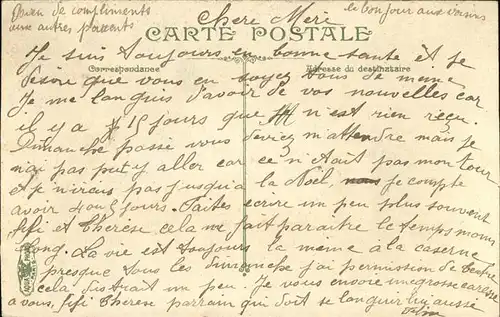 bien de compliments
aux autres parents
le bonjour aux voisins
Chere Meri
CARTE POSTALE
Je suis toujours en bonne sante et je
Correspondance
Adresse du destinataire
desire que vous en soyez vous de meme
Je me languis d'avoir de vos nouvelles car
il y a 15 jours que n'est rien reçu.
Dimanche passé vous deviez m'attendre mais je
n'ai pas put y aller car ce n'était pas mon tour
et je n'irais pas jusqu'a la Noël, je compte
avoir 4 ou 5 jours. Faites ecrire un peu plus souvent
fifi et Therèse cela me fait paraitre le temps moins
long. La vie est toujours la meme à la caserne
presque tous les dimanche j'ai permission de
cela distrait un peu. Je vous envoie une grosse caresse
a vous, fifi Therese parrain qui doit se languir lui aussi